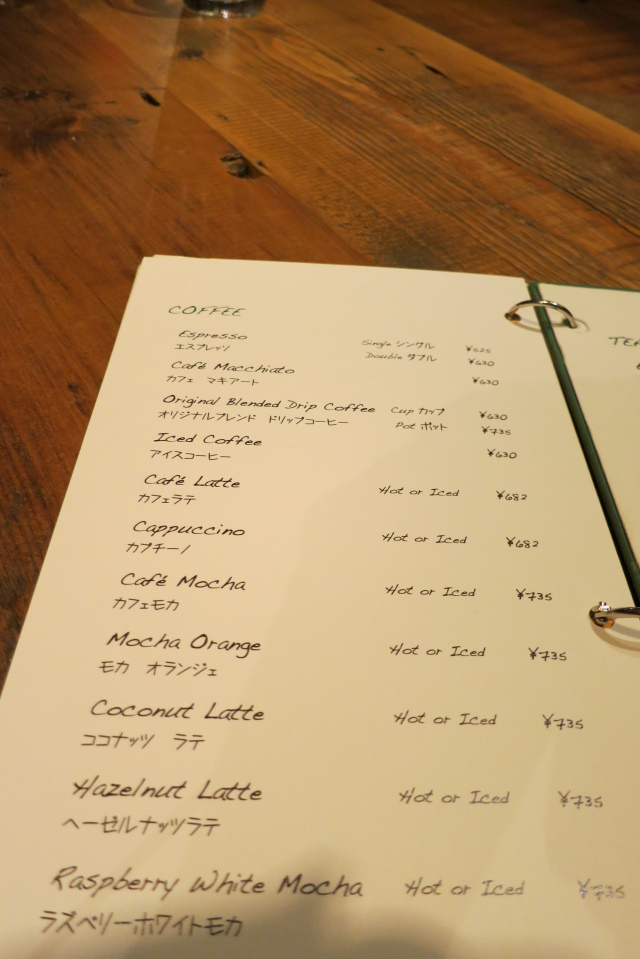 COFFEE
Espresso Single シングル ¥525
エスプレッソ Double ダブル ¥630
Café Macchiato ¥630
カフェ マキアート
Original Blended Drip Coffee Cup カップ ¥630
オリジナルブレンド ドリップコーヒー Pot ポット ¥735
Iced Coffee ¥630
アイスコーヒー
Café Latte Hot or Iced ¥682
カフェラテ
Cappuccino Hot or Iced ¥682
カプチーノ
Café Mocha Hot or Iced ¥735
カフェモカ
Mocha Orange Hot or Iced ¥735
モカ オランジェ
Coconut Latte Hot or Iced ¥735
ココナッツ ラテ
Hazelnut Latte Hot or Iced ¥735
ヘーゼルナッツラテ
Raspberry White Mocha Hot or Iced ¥735
ラズベリーホワイトモカ